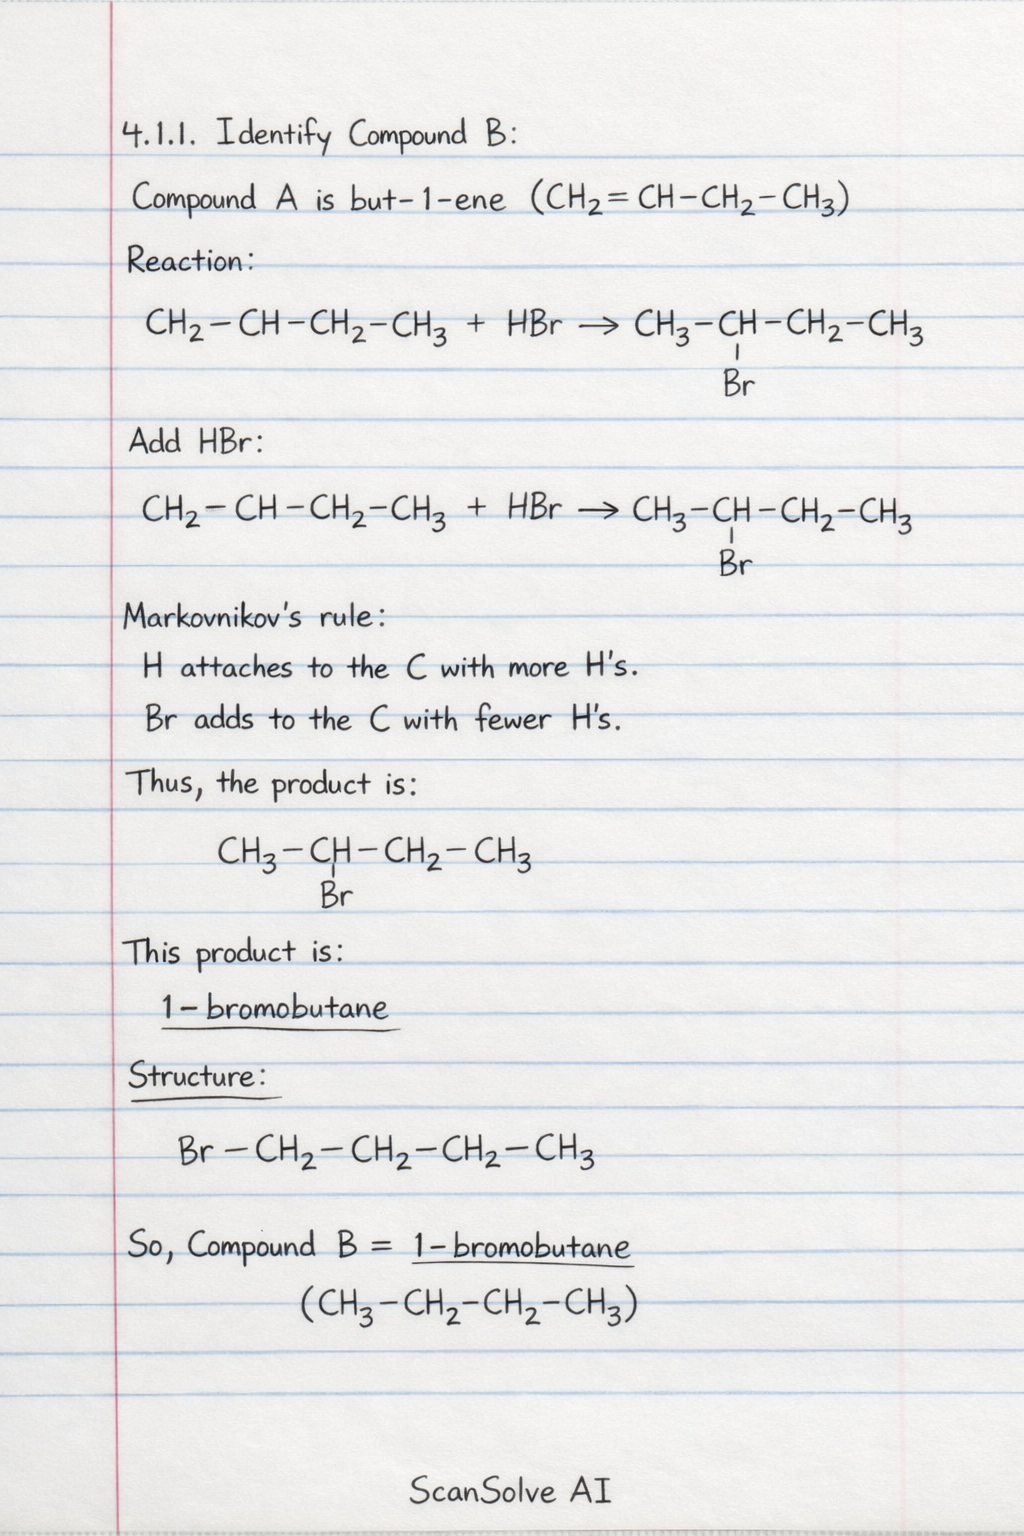 4.1.1. Identify Compound B:
Compound A is but-1-ene (CH₂=CH-CH₂-CH₃)
Reaction:
CH₂-CH-CH₂-CH₃ + HBr → CH₃-CH-CH₂-CH₃
Br
Add HBr:
CH₂-CH-CH₂-CH₃ + HBr → CH₃-CH-CH₂-CH₃
Br
Markovnikov's rule:
H attaches to the C with more H's.
Br adds to the C with fewer H's.
Thus, the product is:
CH₃-CH-CH₂-CH₃
Br
This product is:
1-bromobutane
Structure:
Br-CH₂-CH₂-CH₂-CH₃
So, Compound B = 1-bromobutane
(CH₃-CH₂-CH₂-CH₃)
ScanSolve AI